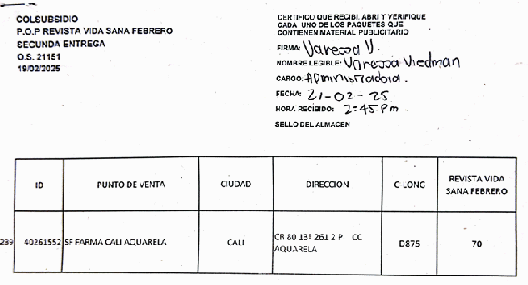 COLSUBSIDIO
P.O.P REVISTA VIDA SANA FEBRERO
SEGUNDA ENTREGA
O.S. 21151
19/02/2025
CERTIFICO QUE RECIBI, ABRI Y VERIFIQUE
CADA UNO DE LOS PAQUETES QUE
CONTIENEN MATERIAL PUBLICITARIO
FIRMA: Vanessa V.
NOMBRE LEGIBLE: Vanessa Viedman
CARGO: Administradora.
FECHA: 21-02-25
HORA RECIBIDO: 2:45 Pm
SELLO DEL ALMACEN
ID PUNTO DE VENTA CIUDAD DIRECCION REVISTA VIDA SANA FEBRERO
239 40261552 SF FARMA CALI AQUARELA CALI CR 80 AQUARELA D875 70